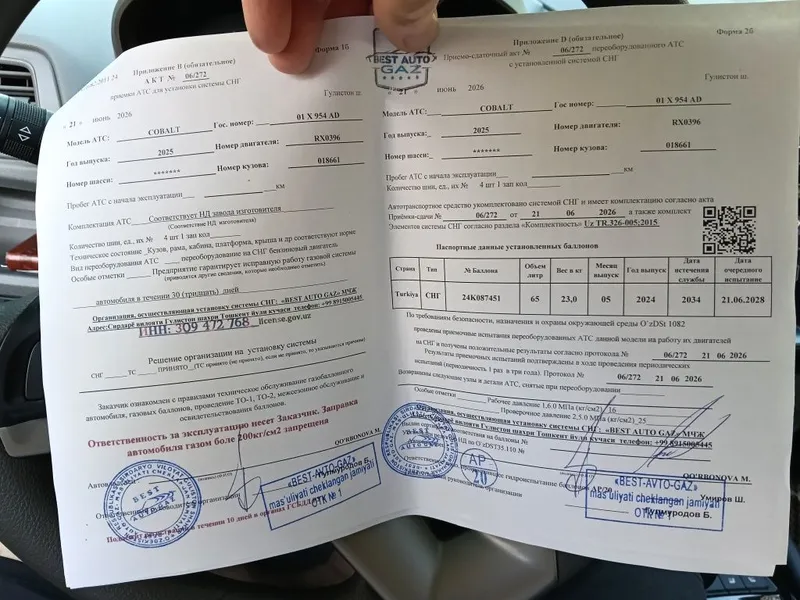 Форма 1б
Приложение В (обязательное)
А К Т № 06/272
приемки АТС для установки системы СНГ
Гулистон ш.
« 21 » июнь 2026
Модель АТС: COBALT Гос. номер: 01 X 954 AD
Год выпуска: 2025 Номер двигателя: RX0396
Номер шасси: ******* Номер кузова: 018661
Пробег АТС с начала эксплуатации км
Комплектация АТС Соответствует НД завода изготовителя
(Соответствие НД изготовителя)
Количество шин, ед., их № 4 шт 1 зап кол
Техническое состояние Кузов, рама, кабина, платформа, крыша и др соответствуют норме
Вид переоборудования АТС переоборудование на СНГ бензиновый двигатель
Особые отметки Предприятие гарантирует исправную работу газовой системы
(приводятся другие сведения, которые необходимо отметить)
автомобиля в течении 30 (тридцать) дней
Организация, осуществляющая установку системы СНГ: «BEST AUTO GAZ» МЧЖ
Адрес:Сирдарё вилояти Гулистон шахри Тошкент йули кучаси телефон: +99 8915005445
ИНН: 309 472 768 license.gov.uz
Решение организации на установку системы
СНГ ТС ПРИНЯТО (ТС принято (не принято), если не принято, то указывается причина)
Заказчик ознакомлен с правилами техническое обслуживание газобаллонного
автомобиля, газовых баллонов, проведение ТО-1, ТО-2, межсезонное обслуживание и
освидетельствования баллонов.
Ответственность за эксплуатацию несет Заказчик. Заправка
автомобиля газом боле 200кг/см2 запрещена
QO'RBONOVA M.
Нурмуродов Б.
«BEST-AVTO-GAZ»
mas'uliyati cheklangan jamiyati
OTK № 1
в течении 10 дней в органах
BEST AUTO
GAZ
Форма 2б
Приложение D (обязательное)
Приемо-сдаточный акт № 06/272 переоборудованного АТС
с установленной системой СНГ
Гулистон ш.
21 июнь 2026
Модель АТС: COBALT Гос. номер: 01 X 954 AD
Год выпуска: 2025 Номер двигателя: RX0396
Номер шасси: ******* Номер кузова: 018661
Пробег АТС с начала эксплуатации км
Количество шин, ед., их № 4 шт 1 зап кол
Автотранспортное средство укомплектовано системой СНГ и имеет комплектацию согласно акта
Приёмки-сдачи № 06/272 от 21 06 2026 а также комплект
Элементов системы СНГ согласно раздела «Комплектность» Uz TR.326-005:2015
Паспортные данные установленных баллонов
Страна Тип № Баллона Объем литр Вес в кг Месяц выпуск Год выпуск Дата истечения службы Дата очередного испытание
Turkiya СНГ 24K087451 65 23,0 05 2024 2034 21.06.2028
По требованиям безопасности, назначения и охраны окружающей среды O'zDSt 1082
проведены приемочные испытания переоборудованных АТС данной модели на работу их двигателей
на СНГ и получены положительные результаты согласно протокола № 06/272 21 06 2026
Результаты приемочных испытаний подтверждены в ходе проведения периодических
испытаний (периодичность 1 раз в три года). Протокол № 06/272 21 06 2026
Возвращены следующие узлы и детали АТС, снятые при переоборудовании
Особые отметки Рабочее давление 1,6.0 МПа (кг/см2) 16
Проверочное давление 2,5.0 МПа (кг/см2) 25
Организация, осуществляющая установку системы СНГ: «BEST AUTO GAZ» МЧЖ
Гулистон шахри Тошкент йули кучаси телефон: +99 8915005445
соответствия на баллоны №
O'zDST35.110 №
QO'RBONOVA M.
AP
20
«BEST-AVTO-GAZ»
mas'uliyati cheklangan jamiyati
OTK № 1
Умиров Ш.
Нурмуродов Б.